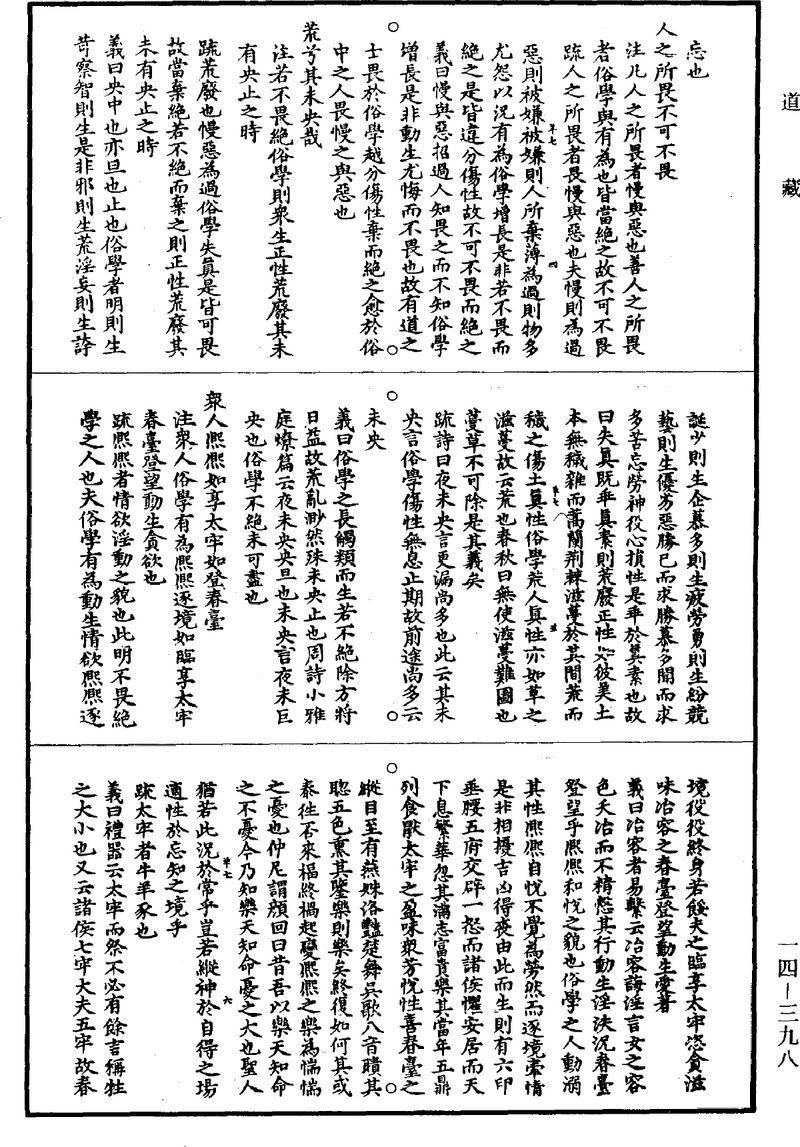 道藏
忘也
人之所畏不可不畏
注凡人之所畏者慢與惡也善人之所畏
者俗學與有為也皆當絕之故不可不畏
疏人之所畏者畏慢與惡也夫慢則為過
惡則被嫌被嫌則人所棄薄為過則物多
尤怨以況有為俗學增長是非若不畏而
絕之是皆違分傷性故不可不畏而絕之
義曰慢與惡招過人知畏之而不知俗學
增長是非動生尤悔而不畏也故有道之
士畏於俗學越分傷性棄而絕之愈於俗
中之人畏慢之與惡也
荒兮其未央哉
注若不畏絕俗學則衆生正性荒廢其未
有央止之時
疏荒廢也慢惡為過俗學失真是皆可畏
故當棄絕若不絕而棄之則正性荒廢其
未有央止之時
義曰央中也亦旦也止也俗學者明則生
苛察智則生是非邪則生荒淫妄則生誇
誕少則生企慕多則生疲勞勇則生紛競
藝則生優劣惡勝己而求勝慕多聞而求
多苦忘勞神役心損性是乖於真素也故
曰失真既乖真素則荒廢正性如彼美土
本無穢雜而蒿蘭荆棘滋蔓於其間荒而
穢之傷土真性俗學荒人真性亦如草之
滋蔓故云荒也春秋曰無使滋蔓難圖也
蔓草不可除是其義矣
疏詩曰夜未央言更漏尚多也此云其未
央言俗學傷性無息止期故前途尚多云
未央
義曰俗學之長觸類而生若不絕除方將
日益故荒亂渺然殊未央止也周詩小雅
庭燎篇云夜未央央旦也未央言夜未巨
央也俗學不絕未可盡也
衆人熙熙如享太牢如登春臺
注衆人俗學有為熙熙逐境如臨享太牢
春臺登望動生貪欲也
疏熙熙者情欲淫動之貌也此明不畏絕
學之人也夫俗學有為動生情欲熙熙逐
境役役終身若餒夫之臨享太牢恣貪滋
味冶容之春臺登望動生愛著
義曰冶容者易繫云冶容誨淫言女之容
色夭冶而不精慤其行動生淫泆況春臺
登望乎熙熙和悅之貌也俗學之人動溺
其性熙熙自悅不覺為勞然而逐境牽情
是非相擾吉凶得喪由此而生則有六印
垂腰五府交辟一怒而諸侯懼安居而天
下息繁華怨其滿志富貴樂其當年五鼎
列食猒太牢之盈味衆芳悅性喜春臺之
縱目至有燕姝洛豔楚舞吳歌八音聵其
聦五色熏其鑒樂則樂矣終復如何其或
泰往否來福終禍起變熙熙之樂為惴惴
之憂也仲尼謂顏回曰昔吾以樂天知命
之不憂今乃知樂天知命憂之大也聖人
猶若此況於常乎豈若縱神於自得之場
適性於忘知之境乎
疏太牢者牛羊豕也
義曰禮器云太牢而祭不必有餘言稱牲
之大小也又云諸侯七牢大夫五牢故春
一四—三九八